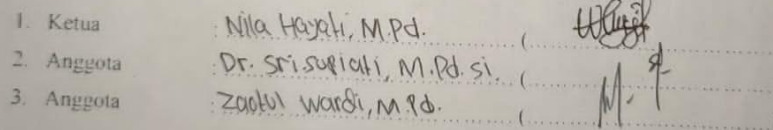 1. Ketua : Nila Hayati, M.Pd. (
2. Anggota : Dr. Sri supiati, M.Pd.si. (
3. Anggota : Zaotul Wardi, M.Pd. (